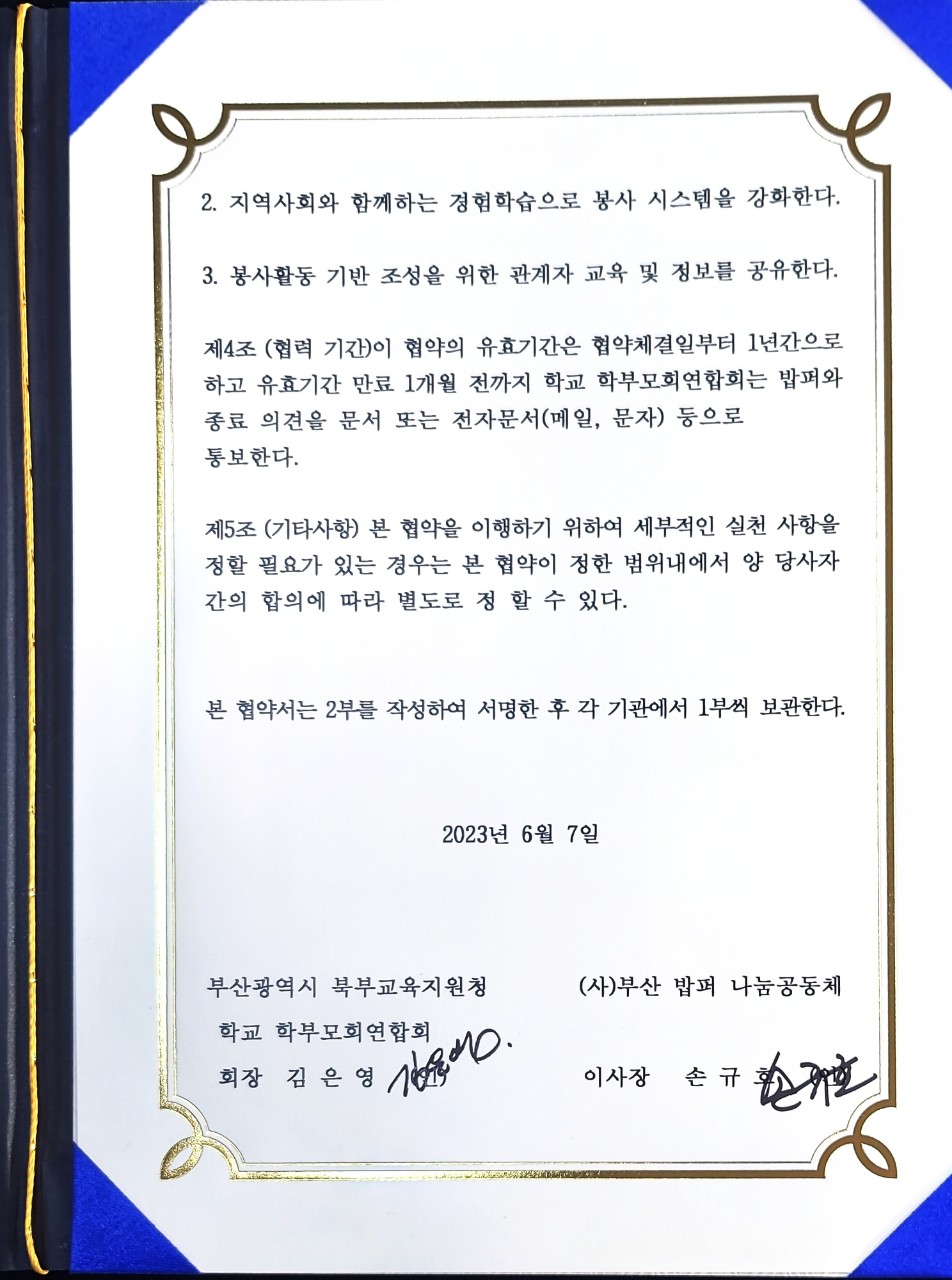 2. 지역사회와 함께하는 경험학습으로 봉사 시스템을 강화한다.
3. 봉사활동 기반 조성을 위한 관계자 교육 및 정보를 공유한다.
제4조 (협력 기간)이 협약의 유효기간은 협약체결일부터 1년간으로
하고 유효기간 만료 1개월 전까지 학교 학부모회연합회는 밥퍼와
종료 의견을 문서 또는 전자문서(메일, 문자) 등으로
통보한다.
제5조 (기타사항) 본 협약을 이행하기 위하여 세부적인 실천 사항을
정할 필요가 있는 경우는 본 협약이 정한 범위내에서 양 당사자
간의 합의에 따라 별도로 정 할 수 있다.
본 협약서는 2부를 작성하여 서명한 후 각 기관에서 1부씩 보관한다.
2023년 6월 7일
부산광역시 북부교육지원청 (사)부산 밥퍼 나눔공동체
학교 학부모회연합회
회장 김 은 영 이사장 손 규 호